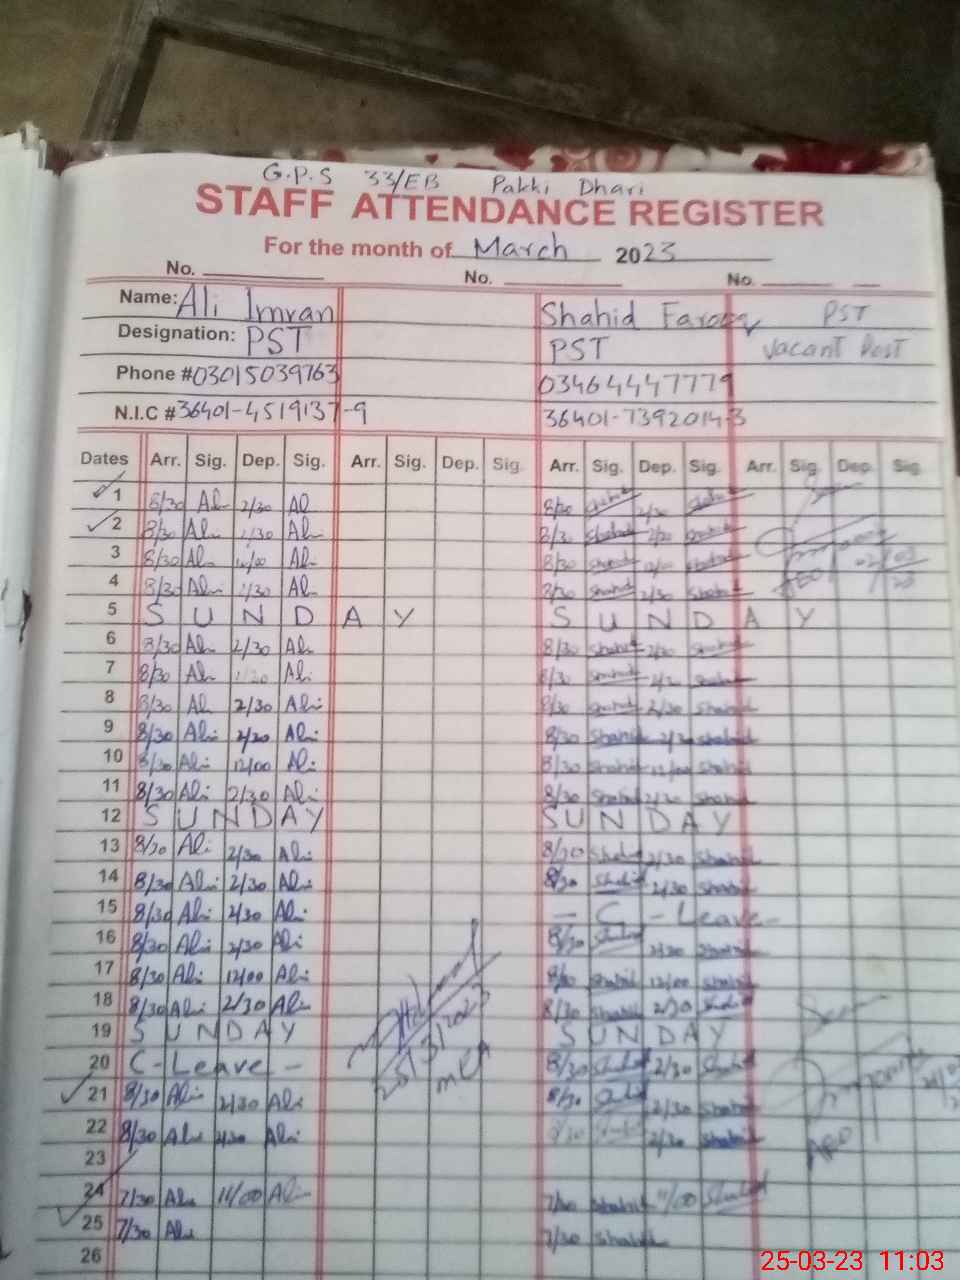 G.P.S 33/EB Pakki Dhari
STAFF ATTENDANCE REGISTER
For the month of March 2023
No. No. No.
Name: Ali Imran Shahid Farooq PST
Designation: PST PST Vacant Post
Phone #03015039763 03464447779
N.I.C #36401-4519137-9 36401-7392014-3
Dates Arr. Sig. Dep. Sig. Arr. Sig. Dep. Sig. Arr. Sig. Dep. Sig. Arr. Sig. Dep. Sig.
1 8/30 Ali 2/30 Ali 8/30 Shahid 2/30 Shahid
2 8/30 Ali 2/30 Ali 8/30 Shahid 2/30 Shahid
3 8/30 Ali 12/00 Ali 8/30 Shahid 12/00 Shahid
4 8/30 Ali 2/30 Ali 8/30 Shahid 2/30 Shahid
5 SUNDAY SUNDAY
6 8/30 Ali 2/30 Ali 8/30 Shahid 2/30 Shahid
7 8/30 Ali 2/30 Ali 8/30 Shahid 2/30 Shahid
8 8/30 Ali 2/30 Ali 8/30 Shahid 2/30 Shahid
9 8/30 Ali 2/30 Ali 8/30 Shahid 2/30 Shahid
10 8/30 Ali 12/00 Ali 8/30 Shahid 12/00 Shahid
11 8/30 Ali 2/30 Ali 8/30 Shahid 2/30 Shahid
12 SUNDAY SUNDAY
13 8/30 Ali 2/30 Ali 8/30 Shahid 2/30 Shahid
14 8/30 Ali 2/30 Ali 8/30 Shahid 2/30 Shahid
15 8/30 Ali 2/30 Ali - C - Leave -
16 8/30 Ali 2/30 Ali 8/30 Shahid 2/30 Shahid
17 8/30 Ali 12/00 Ali 8/30 Shahid 12/00 Shahid
18 8/30 Ali 2/30 Ali 8/30 Shahid 2/30 Shahid
19 SUNDAY SUNDAY
20 C - Leave - 25/3/2023 8/30 Shahid 2/30 Shahid
21 8/30 Ali 2/30 Ali MEA 8/30 Shahid 2/30 Shahid
22 8/30 Ali 2/30 Ali 8/30 Shahid 2/30 Shahid
23
24 7/30 Ali 11/00 Ali 7/30 Shahid 11/00 Shahid
25 7/30 Ali 7/30 Shahid
26
25-03-23 11:03